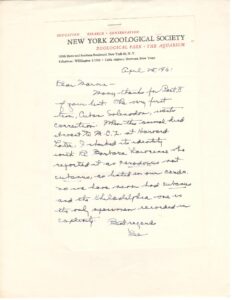 EDUCATION · RESEARCH · CONSERVATION
NEW YORK ZOOLOGICAL SOCIETY
ZOOLOGICAL PARK · THE AQUARIUM
April 25 '61
Dear Marvin —
Many thanks for Part II
of your list. The very first
item, Cuban Solenodon, needs
correction. When the animal died
it went to M.C.Z. at Harvard
Later, I checked its identity
with Barbara Lawrence who
reported it as paradoxus not
cubanus, as listed on our cards.
So we have never had cubanus
and the Philadelphia one is
the only specimen recorded in
captivity.
Best regards